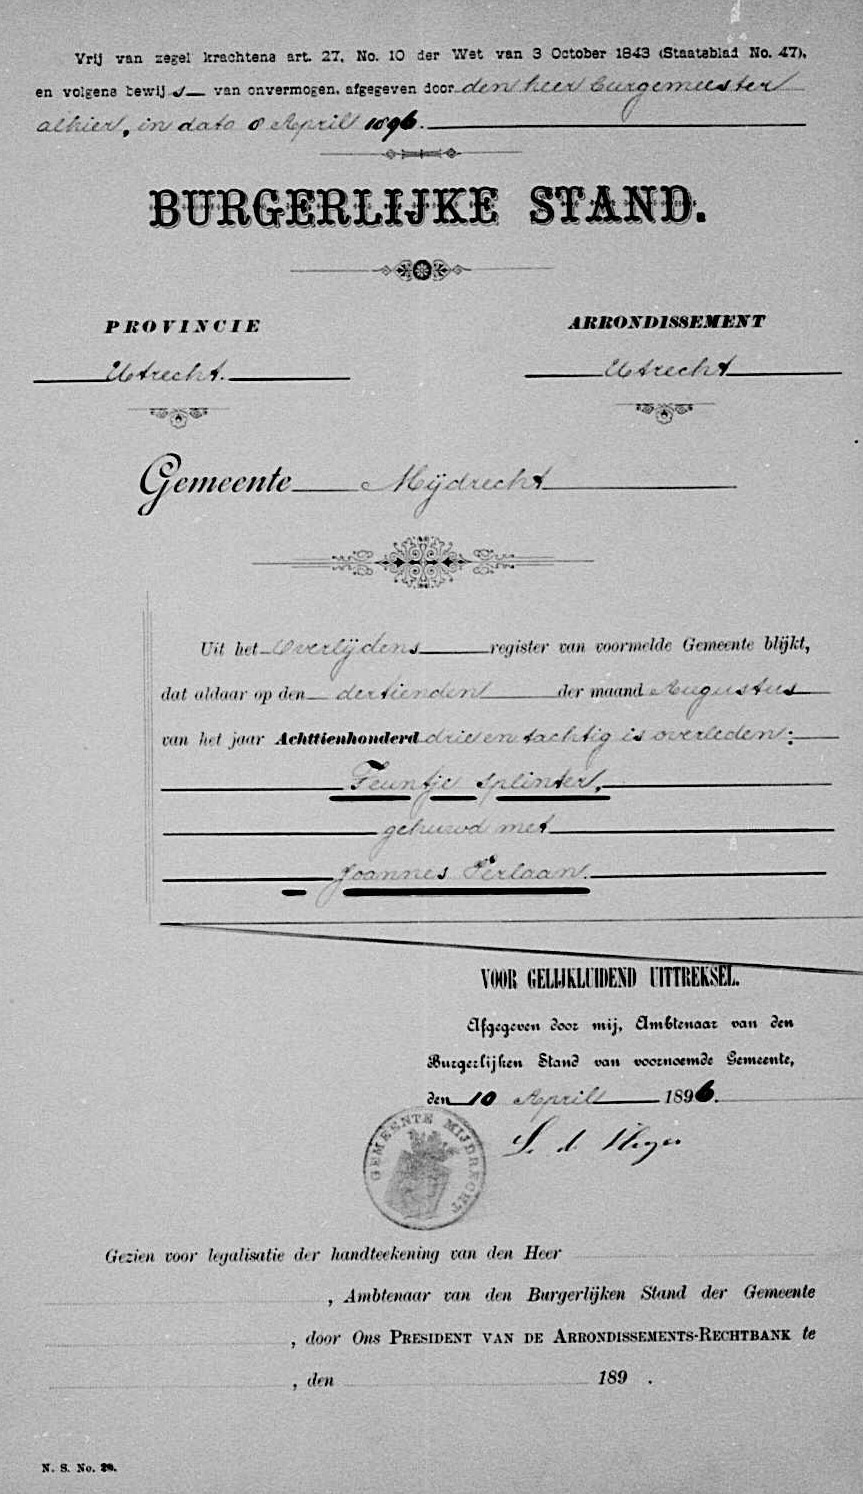 Vrij van zegel krachtens art. 27, No. 10 der Wet van 3 October 1843 (Staatsblad No. 47),
en volgens bewijs van onvermogen, afgegeven door den heer burgemeester
alhier, in dato 8 April 1896.
BURGERLIJKE STAND.
PROVINCIE
Utrecht.
ARRONDISSEMENT
Utrecht
Gemeente Mijdrecht
Uit het Overlijdens register van voormelde Gemeente blijkt,
dat aldaar op den dertienden der maand Augustus
van het jaar Achttienhonderd drie en tachtig is overleden:
Teuntje Splinter,
gehuwd met
Joannes Verlaan.
VOOR GELIJKLUIDEND UITTREKSEL.
Afgegeven door mij, Ambtenaar van den
Burgerlijken Stand van voornoemde Gemeente,
den 10 April 1896.
GEMEENTE MIJDRECHT
Gezien voor legalisatie der handteekening van den Heer
, Ambtenaar van den Burgerlijken Stand der Gemeente
, door Ons PRESIDENT VAN DE ARRONDISSEMENTS-RECHTBANK te
, den 189 .
N. S. No.